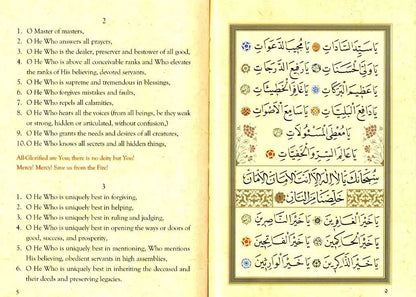 2
1. O Master of masters,
2. O He Who answers all prayers,
3. O He Who is the dealer, preserver and bestower of all good,
4. O He Who is above all conceivable ranks and Who elevates
the ranks of His believing, devoted servants,
5. O He Who is supreme and tremendous in blessings,
6. O He Who forgives mistakes and faults,
7. O He Who repels all calamities,
8. O He Who hears all the voices (from all beings, be they weak
or strong, hidden or articulated, without confusion,)
9. O He Who grants the needs and desires of all creatures,
10. O He Who knows all secrets and all hidden things,
All-Glorified are You; there is no deity but You!
Mercy! Mercy! Save us from the Fire!
3
1. O He Who is uniquely best in forgiving,
2. O He Who is uniquely best in helping,
3. O He Who is uniquely best in ruling and judging,
4. O He Who is uniquely best in opening the ways or doors of
good, success, and prosperity,
5. O He Who is uniquely best in mentioning, Who mentions
His believing, obedient servants in high assemblies,
6. O He Who is uniquely best in inheriting the deceased and
their deeds and preserving legacies.
5
يَا سَيِّدَ السَّادَاتِ يَا مُجِيبَ الدَّعَوَاتِ
يَا وَلِيَّ الْحَسَنَاتِ يَا رَفِيعَ الدَّرَجَاتِ
يَا عَظِيمَ الْبَرَكَاتِ يَا غَافِرَ الْخَطِيئَاتِ
يَا دَافِعَ الْبَلِيَّاتِ يَا سَامِعَ الْاَصْوَاتِ
يَا مُعْطِىَ الْمَسْئُولَاتِ
يَا عَالِمَ السِّرِّ وَالْخَفِيَّاتِ
سُبْحَانَكَ يَا لَا اِلٰهَ اِلَّا اَنْتَ الْاَمَانُ الْاَمَانُ
خَلِّصْنَا مِنَ النَّارِ
يَا خَيْرَ الْغَافِرِينَ يَا خَيْرَ النَّاصِرِينَ
يَا خَيْرَ الْحَاكِمِينَ يَا خَيْرَ الْفَاتِحِينَ
يَا خَيْرَ الذَّاكِرِينَ يَا خَيْرَ الْوَارِثِينَ